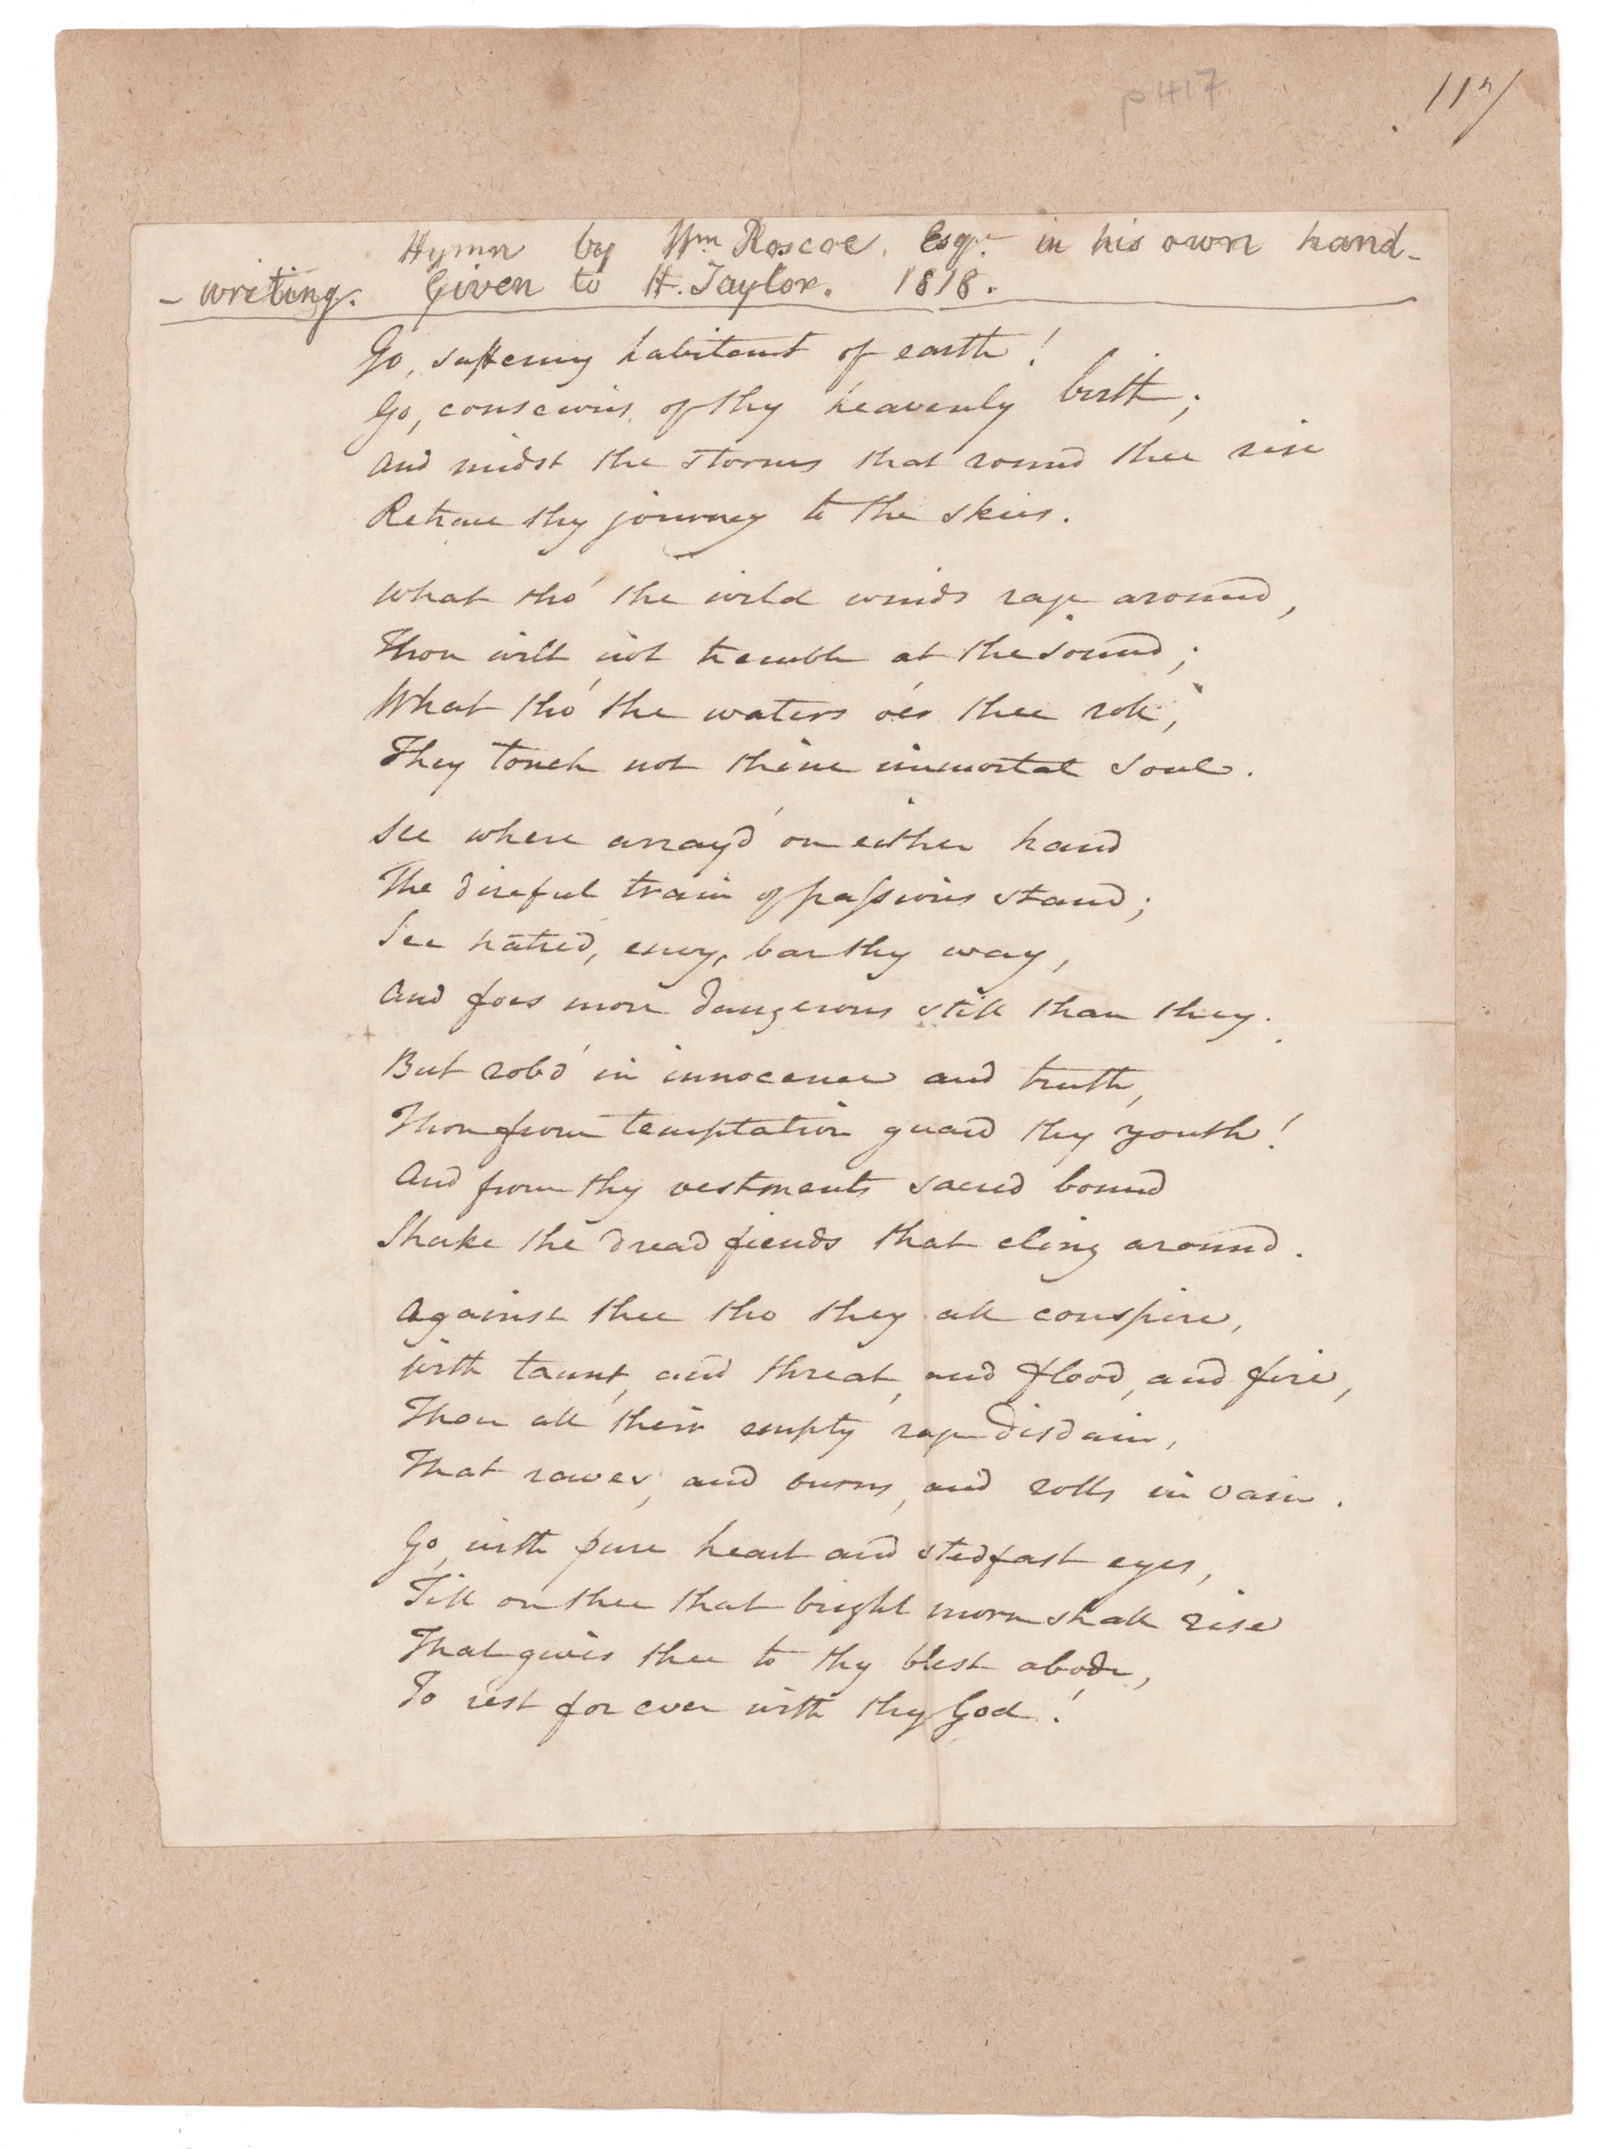 p 417
117
Hymn by Wm Roscoe. Esqr. in his own hand-
- writing. Given to H. Taylor. 1818.
Go, suffering habitant of earth!
Go, conscious of thy heavenly birth;
And midst the storms that round thee rise
Retrace thy journey to the skies.
What tho' the wild winds rage around,
Thou wilt not tremble at the sound;
What tho' the waters o'er thee roll,
They touch not thine immortal soul.
See where array'd on either hand
The direful train of passions stand;
See hatred, envy, bar thy way,
And foes more dangerous still than they.
But rob'd in innocence and truth,
Thou from temptation guard thy youth!
And from thy vestments sacred bound
Shake the dread fiends that cling around.
Against thee tho they all conspire,
With taunt, and threat, and flood, and fire,
Thou all their empty rage disdain,
That raves, and burns, and rolls in vain.
Go, with pure heart and stedfast eyes,
Till on thee that bright morn shall rise
That gives thee to thy blest abode,
To rest for ever with thy God!